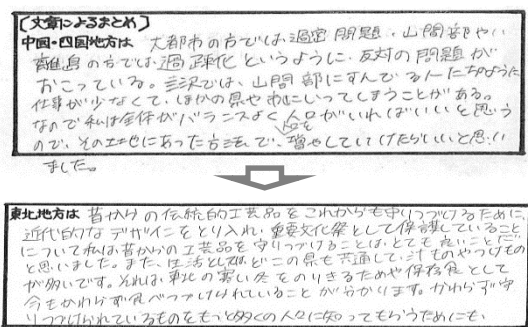 〔文章によるまとめ〕
中国・四国地方は 大都市の方では、過密問題、山間部や
離島の方では過疎化というように、反対の問題が
おこっている。 では、山間部にすんでる人たちのように
仕事が少なくて、ほかの県や市にいってしまうことがある。
なので私は全体がバランスよく人口がいればいいと思う
ので、その土地にあった方法で、人口を増やしていけたらいいと思い
ました。
東北地方は 昔からの伝統的工芸品をこれからも守りつづけるために、
近代的なデザインをとり入れ、重要文化祭として保護していること
について私は昔からの工芸品を守りつづけることは、とても良いことだ
と思いました。また、生活としては、どこの県も共通して、汁ものやつけもの
が多いです。それは、東北の寒い冬をのりきるためや保存食として
今もかわらず食べつづけられていることが分かります。かわらず守
りつづけられているものをもっと多くの人々に知ってもらうためにも、